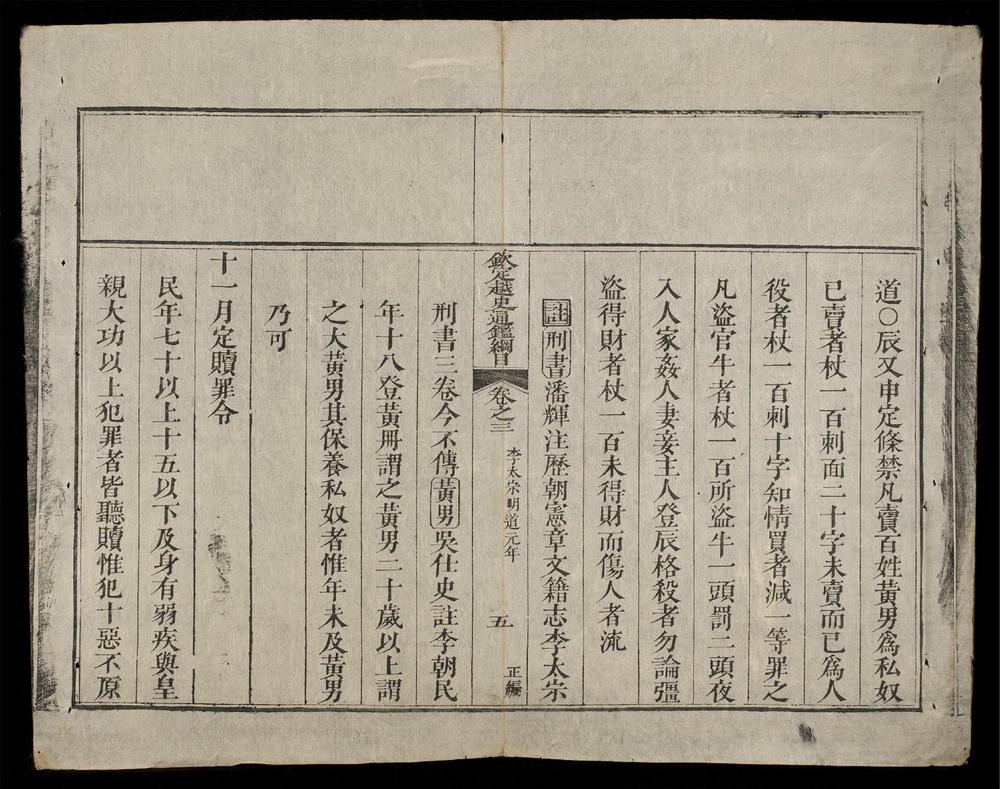 道○辰又申定條禁凡賣百姓黃男爲私奴
已賣者杖一百刺面二十字未賣而已爲人
役者杖一百刺十字知情買者減一等罪之
凡盜官牛者杖一百所盜牛一頭罰二頭夜
入人家姦人妻妾主人登辰格殺者勿論彊
盜得財者杖一百未得財而傷人者流
註刑書潘輝注歷朝憲章文籍志李太宗
欽定越史通鑑綱目 卷之三 李太宗明道元年 五 正編
刑書三卷今不傳黃男吳仕史註李朝民
年十八登黃冊謂之黃男二十歲以上謂
之大黃男其保養私奴者惟年未及黃男
乃可
十一月定贖罪令
民年七十以上十五以下及身有弱疾與皇
親大功以上犯罪者皆聽贖惟犯十惡不原